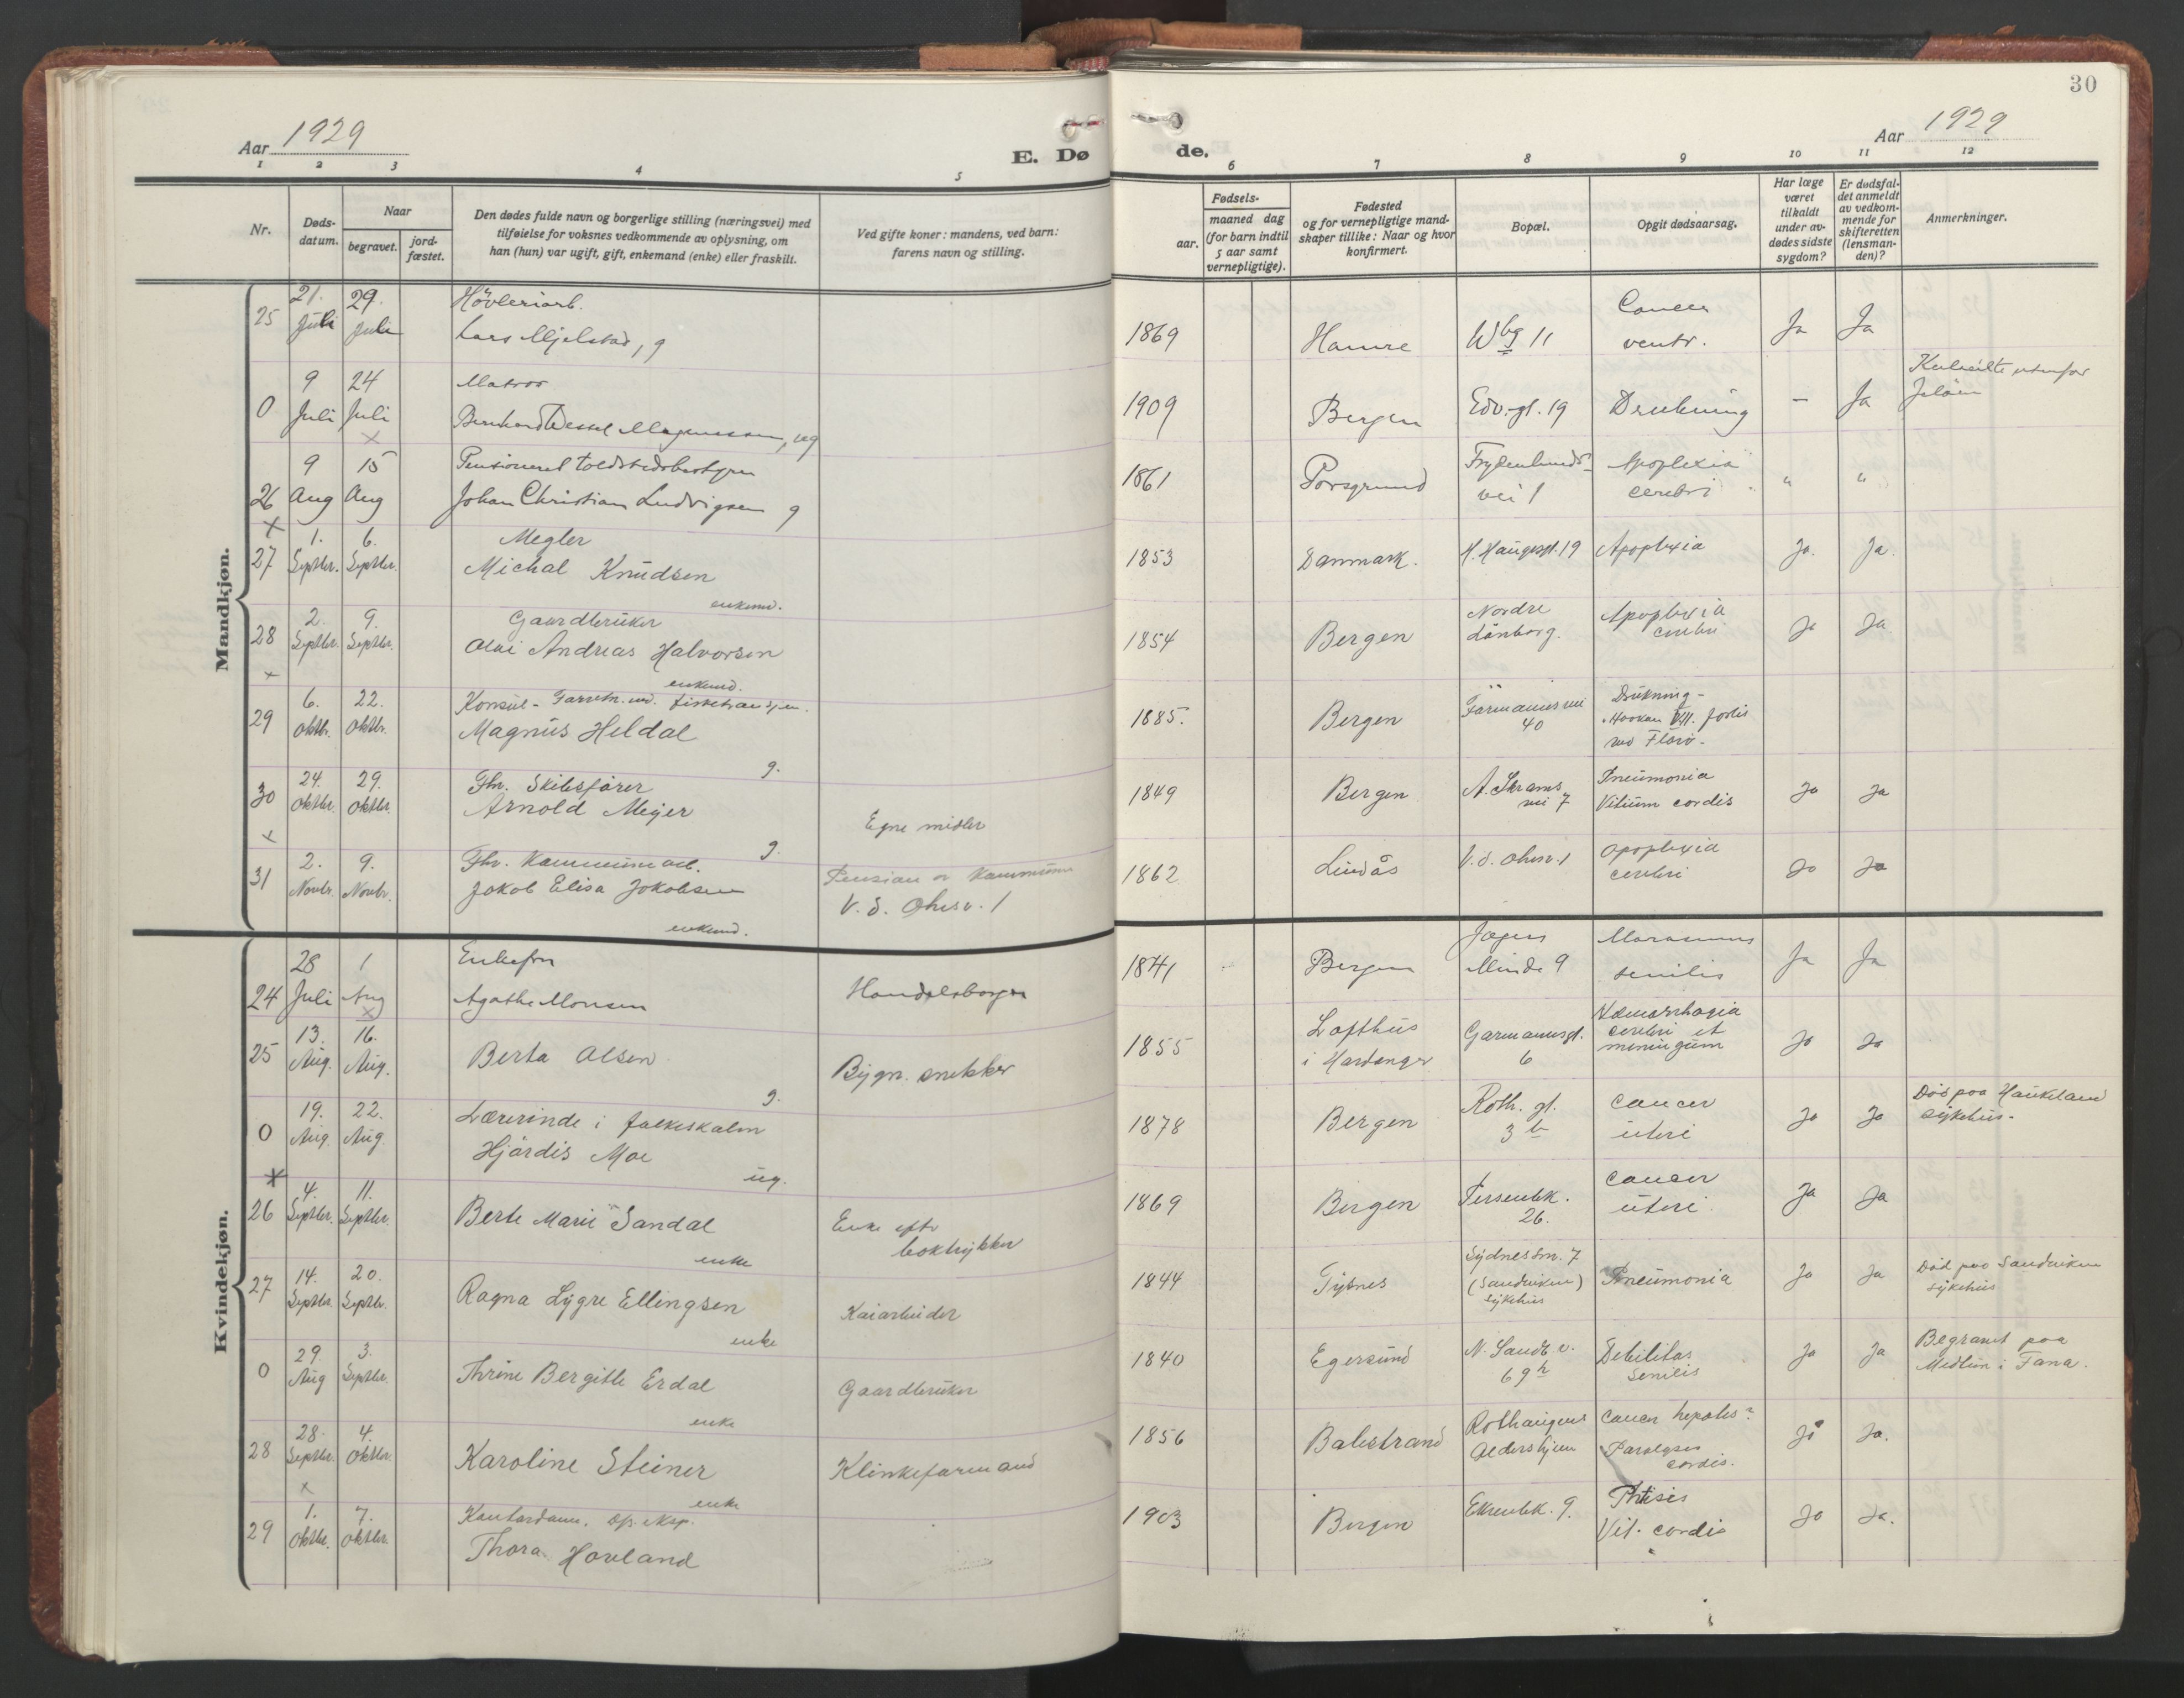 30
Aar 1929
E. Dø
de.
Aar 1929
1 2 3 4 5 6 7 8 9 10 11 12
Nr.
Døds-
datum.
Naar
begravet.
jord-
fæstet.
Den dødes fulde navn og borgerlige stilling (næringsvei) med
tilføielse for voksnes vedkommende av oplysning, om
han (hun) var ugift, gift, enkemand (enke) eller fraskilt.
Ved gifte koner: mandens, ved barn:
farens navn og stilling.
Fødsels-
aar.
maaned dag
(for barn indtil
5 aar samt
vernepligtige).
Fødested
og for vernepligtige mand-
skaper tillike: Naar og hvor
konfirmert.
Bopæl.
Opgit dødsaarsag.
Har læge
været
tilkaldt
under av-
dødes sidste
sygdom?
Er dødsfal-
det anmeldt
av vedkom-
mende for
skifteretten
(lensman-
den)?
Anmerkninger.
Mandkjøn.
25 21. Juli 29. Juli
Høvleriarb.
Lars Mjelstad, g
1869 Hamre Wbg 11
Cancer
ventr.
Ja Ja
0 9 Juli 24 Juli
Matros
Bernhard Wessel Magnussen, ug
1909 Bergen Edv.gt. 19 Drukning - Ja
26 9 Aug 15 Aug
Pensioneret toldstedsbestyrer
Johan Christian Ludvigsen g
1861 Porsgrund
Frydenlunds-
vei 1
Apoplexia
cerebri
" "
27 1. Septbr. 6. Septbr.
Megler
Michal Knudsen
enkemd.
1853 Danmark. H. Haugesgt. 19 Apoplexia Ja. Ja.
28 2. Septbr. 9. Septbr.
Gaardbruker
Andreas Halvorsen
enkemd.
1854 Bergen
Nordre
Apoplexia
cerebri
Ja Ja
29 6. Oktbr. 22. Oktbr.
Konsul -
Magnus Heldal
g.
1885. Bergen
40
Drukning -
Haakon VII. forlis
ved Florø.
30 24. Oktbr. 29. Oktbr.
Fhv. Skibsfører
Arnold Meyer
g.
Egne midler
1849 Bergen
A. Skrams
vei 7
Pneumonia
Vitium cordis
Ja Ja
31 2. Novbr. 9. Novbr.
Fhv. Kommunearb.
Jakob Elisa Jakobsen
enkemd.
Pension av Kommunen
1862 Lindås
Apoplexia
cerebri
Ja Ja
Kvindekjøn.
24 28 Juli 1 Aug
Enkefru
Agathe Monsen
Handelsborger
1841 Bergen
Jægers
Minde 9
Marasmus
senilis
Ja Ja
25 13. Aug. 16. Aug.
Berta Olsen
g.
Bygn. snekker
1855
Lofthus
i Hardanger
Garmannsgt.
6
Hæmorrhagia
cerebri et
meningum
Ja Ja
0 19. Aug. 22. Aug.
Lærerinde i folkeskolen
Hjørdis Moe
ug.
1878 Bergen
Roth. gt.
3 b
Cancer
uteri
Ja Ja
Død paa Haukeland
sykehus.
26 4. Septbr. 11. Septbr.
Berte Marie Sandal
enke
Enke efter
boktrykker
1869 Bergen
Persenbk.
26.
Cancer
uteri
Ja Ja
27 14. Septbr. 20. Septbr.
Ragna Lygre Ellingsen
enke
Kaiarbeider
1844 Tysnes
Sydnessm. 7
(Sandviken)
sykehus
Pneumonia
Ja Ja
Død paa Sandviken
sykehus
0 29 Aug 3. Septbr.
Thrine Bergitte Erdal
enke
Gaardbruker
1840 Egersund
N. Sandv. v.
Debilitas
senilis
Ja Ja
Begravet paa
i Fana.
28 28. Septbr. 4. Oktbr.
Karoline Steiner
enke
1856 Balestrand
Rothaugens
Aldershjem
Cancer hepatis?
Paralyses
cordis.
Ja Ja.
29 1. Oktbr. 7. Oktbr.
Kontordame.
Thora Hovland
1903 Bergen Ekrenbk. 9.
Phtisis
Vit. cordis
Ja Ja.